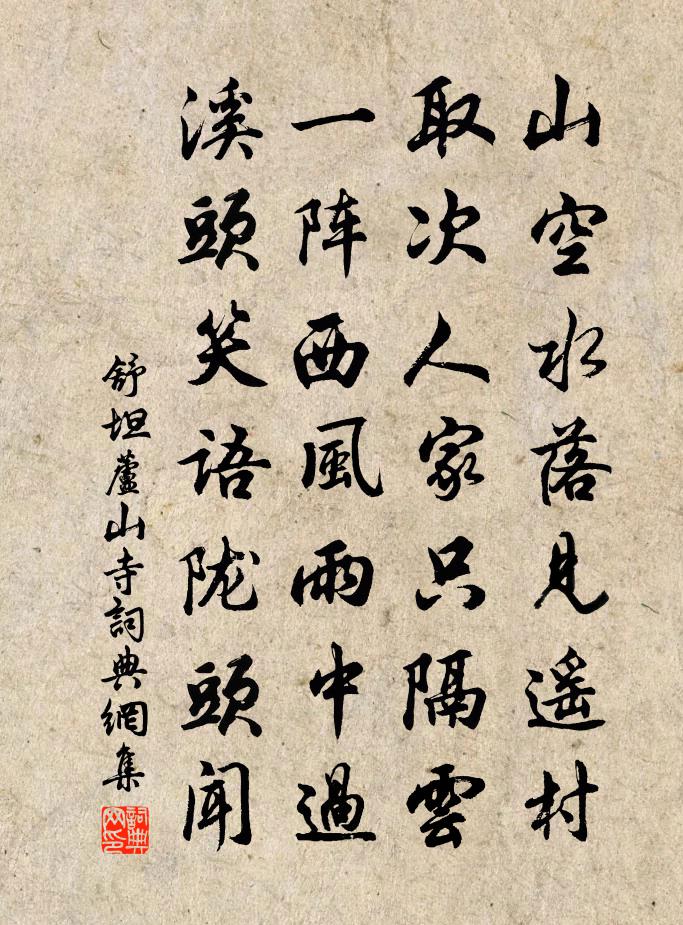 山空水落見遥村
取次人家只隔雲
一阵西風雨中過
溪頭笑語陇頭聞
舒坦蘆山寺詞典網集
詞典網印